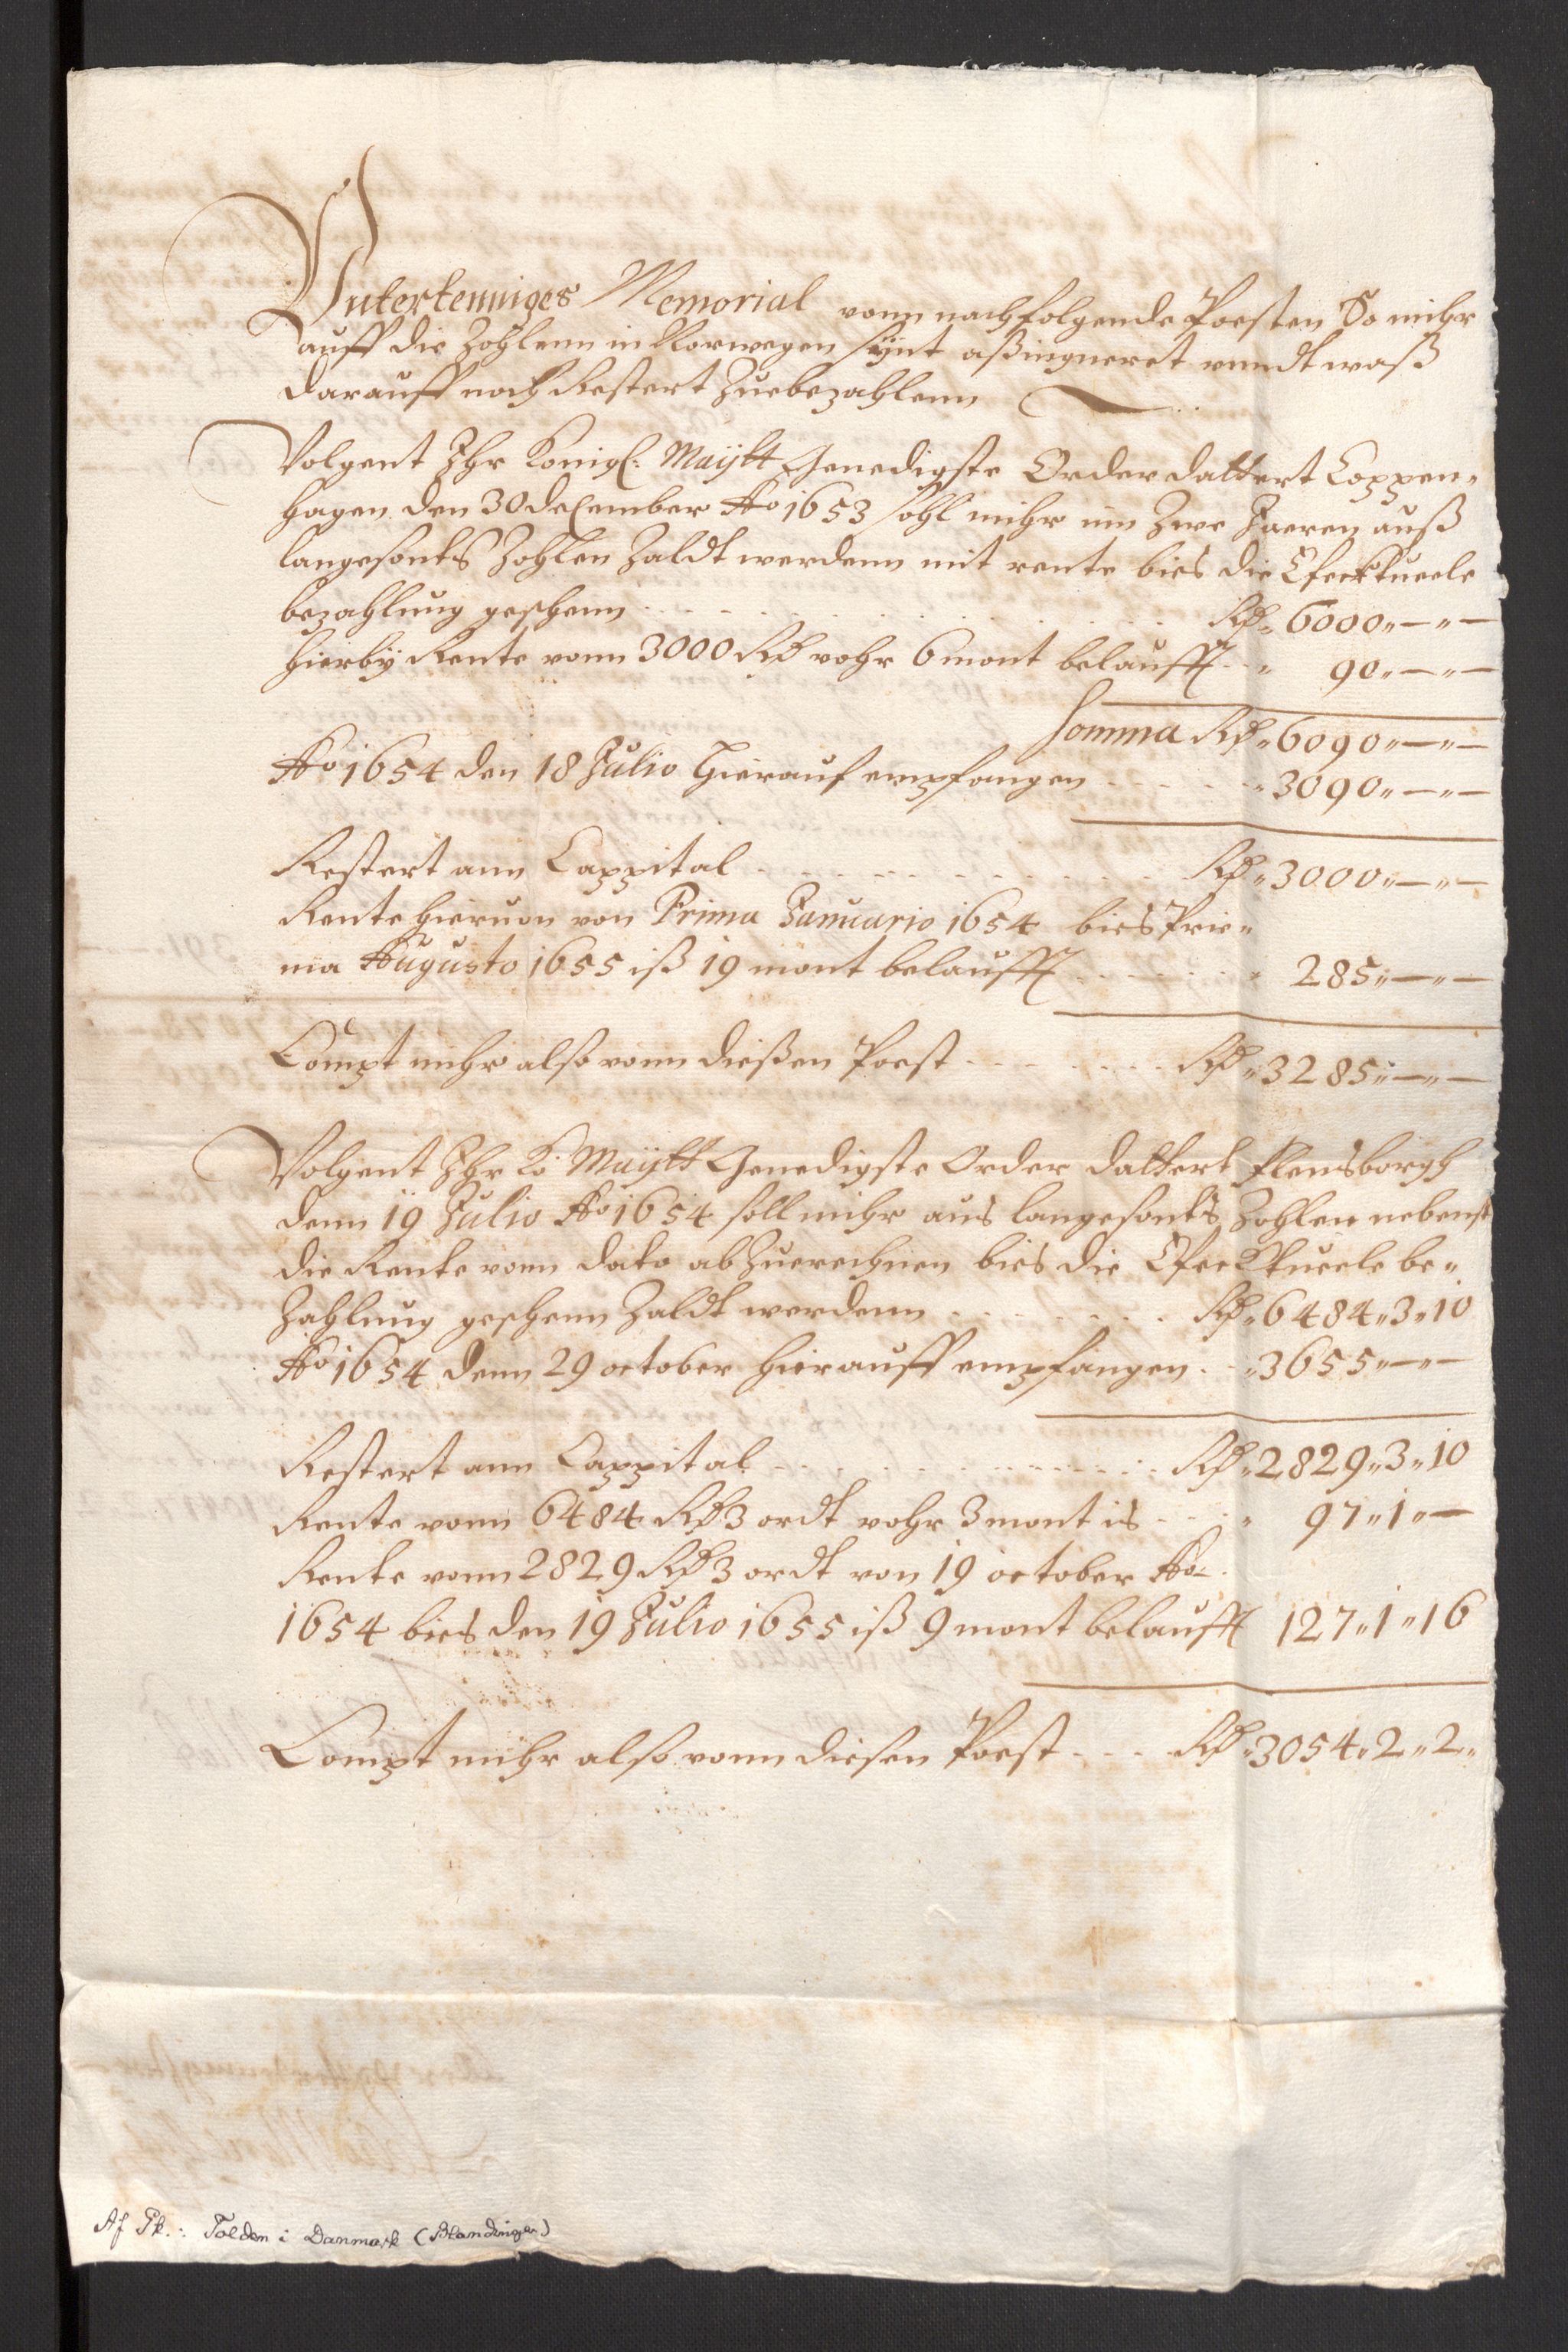 Untertenniges Memorial vonn nachfolgende Poesten So mihr
auff die Zohlenn in Norwegen synt aßingneret unndt waß
darauff noch Restert Zuebezahlenn
Volgent Ihr Königl: Maijtt Genedigste Order dattert Coppen-
hagen den 30 december Ao 1653 sohl mihr inn Zwe Jaeren auß
langesonts Zohlen Zaldt werdenn mit rente bies die Efecktueele
bezahlung geschenn . . . . . . . . . . RD „ 6000 „ — „ —
hierbÿ Rente vonn 3000 RD vohr 6 mont belaufft . . „ 90 „ — „ —
Somma RD „ 6090 „ — „ —
Ao 1654 den 18 Julio Hierauf empfangen . . . . . „ 3090 „ — „ —
Restert ann Cappital . . . . . . . . . . . RD „ 3000 „ — „ —
Rente hieruon von Prima Januario 1654 bies Prie-
ma Augusto 1655 iß 19 mont belaufft . . . . . „ 285 „ — „ —
Compt mihr also vonn dießen Poest . . . . . . RD „ 3285 „ — „ —
Volgent Ihr Kö Maijtt Genedigste Order dattert Flensborgh
denn 19 Julio Ao 1654 soll mihr aus langesonts Zohlen nebenst
die Rente vonn dato ab Zuerechnen bies die Efecktueele be-
Zahlung geschenn Zaldt werdenn . . . . . . . RD „ 6484 „ 3 „ 10
Ao 1654 denn 29 october hierauff empfangen . . „ 3655 „ — „ —
Restert ann Cappital . . . . . . . . . . . RD „ 2829 „ 3 „ 10
Rente vonn 6484 RD 3 ordt vohr 3 mont is . . . „ 97 „ 1 „ —
Rente vonn 2829 RD 3 ordt von 19 october Ao
1654 bies den 19 Julio 1655 iß 9 mont belaufft 127 „ 1 „ 16
Compt mihr also vonn diesen Poest . . . RD „ 3054 „ 2 „ 2 „
Af Pk.: Tolden i Danmark (Blandinger)